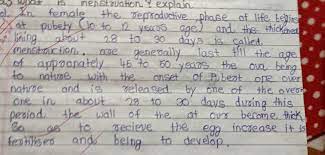 a) what is menstruation? explain.
In female the reproductive phase of life begins
at puberty (10 to 15 years age) and the thickened
lining about 28 to 30 days is called
menstruction. are generally last till the age
of appropriately 45 to 50 years the ova being
to nature with the onset of Pubert ope over
nature and is released by one of the overs
one in about 28 to 30 days during this
period the wall of the at our become thick
So as to recieve the egg increase it is
fertilised and being to develop.